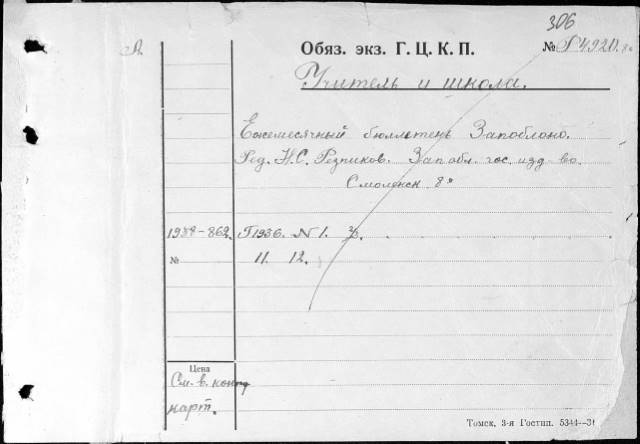 306
Л.
Обяз. экз. Г. Ц. К. П. № Г4920.8°
Учитель и школа.
Ежемесячный бюллетень Запоблоно.
Ред. Н. С. Резников. Запобл. гос. изд-во.
Смоленск. 8°
1938-862. Г1936. №1.
№ 11. 12.
Цена
См. в. конт
карт.
Томск, 3-я Гостип. 5344—31